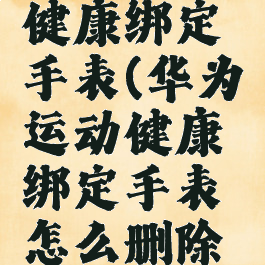 健康绑定
手表(华为
运动健康
绑定手表
怎么删除